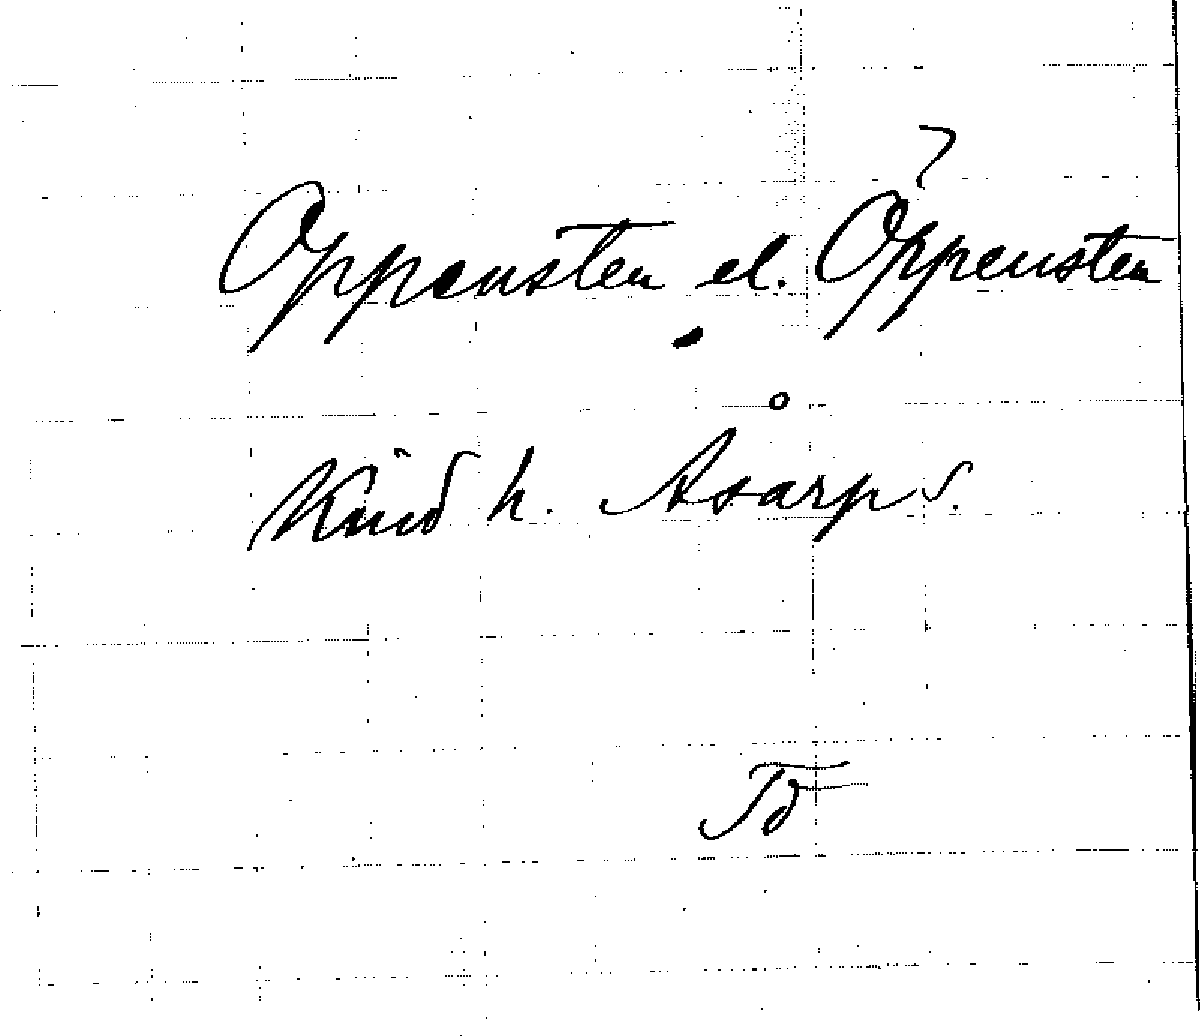 Oppensten el. Öppensten
Kind h. Åsarp s.